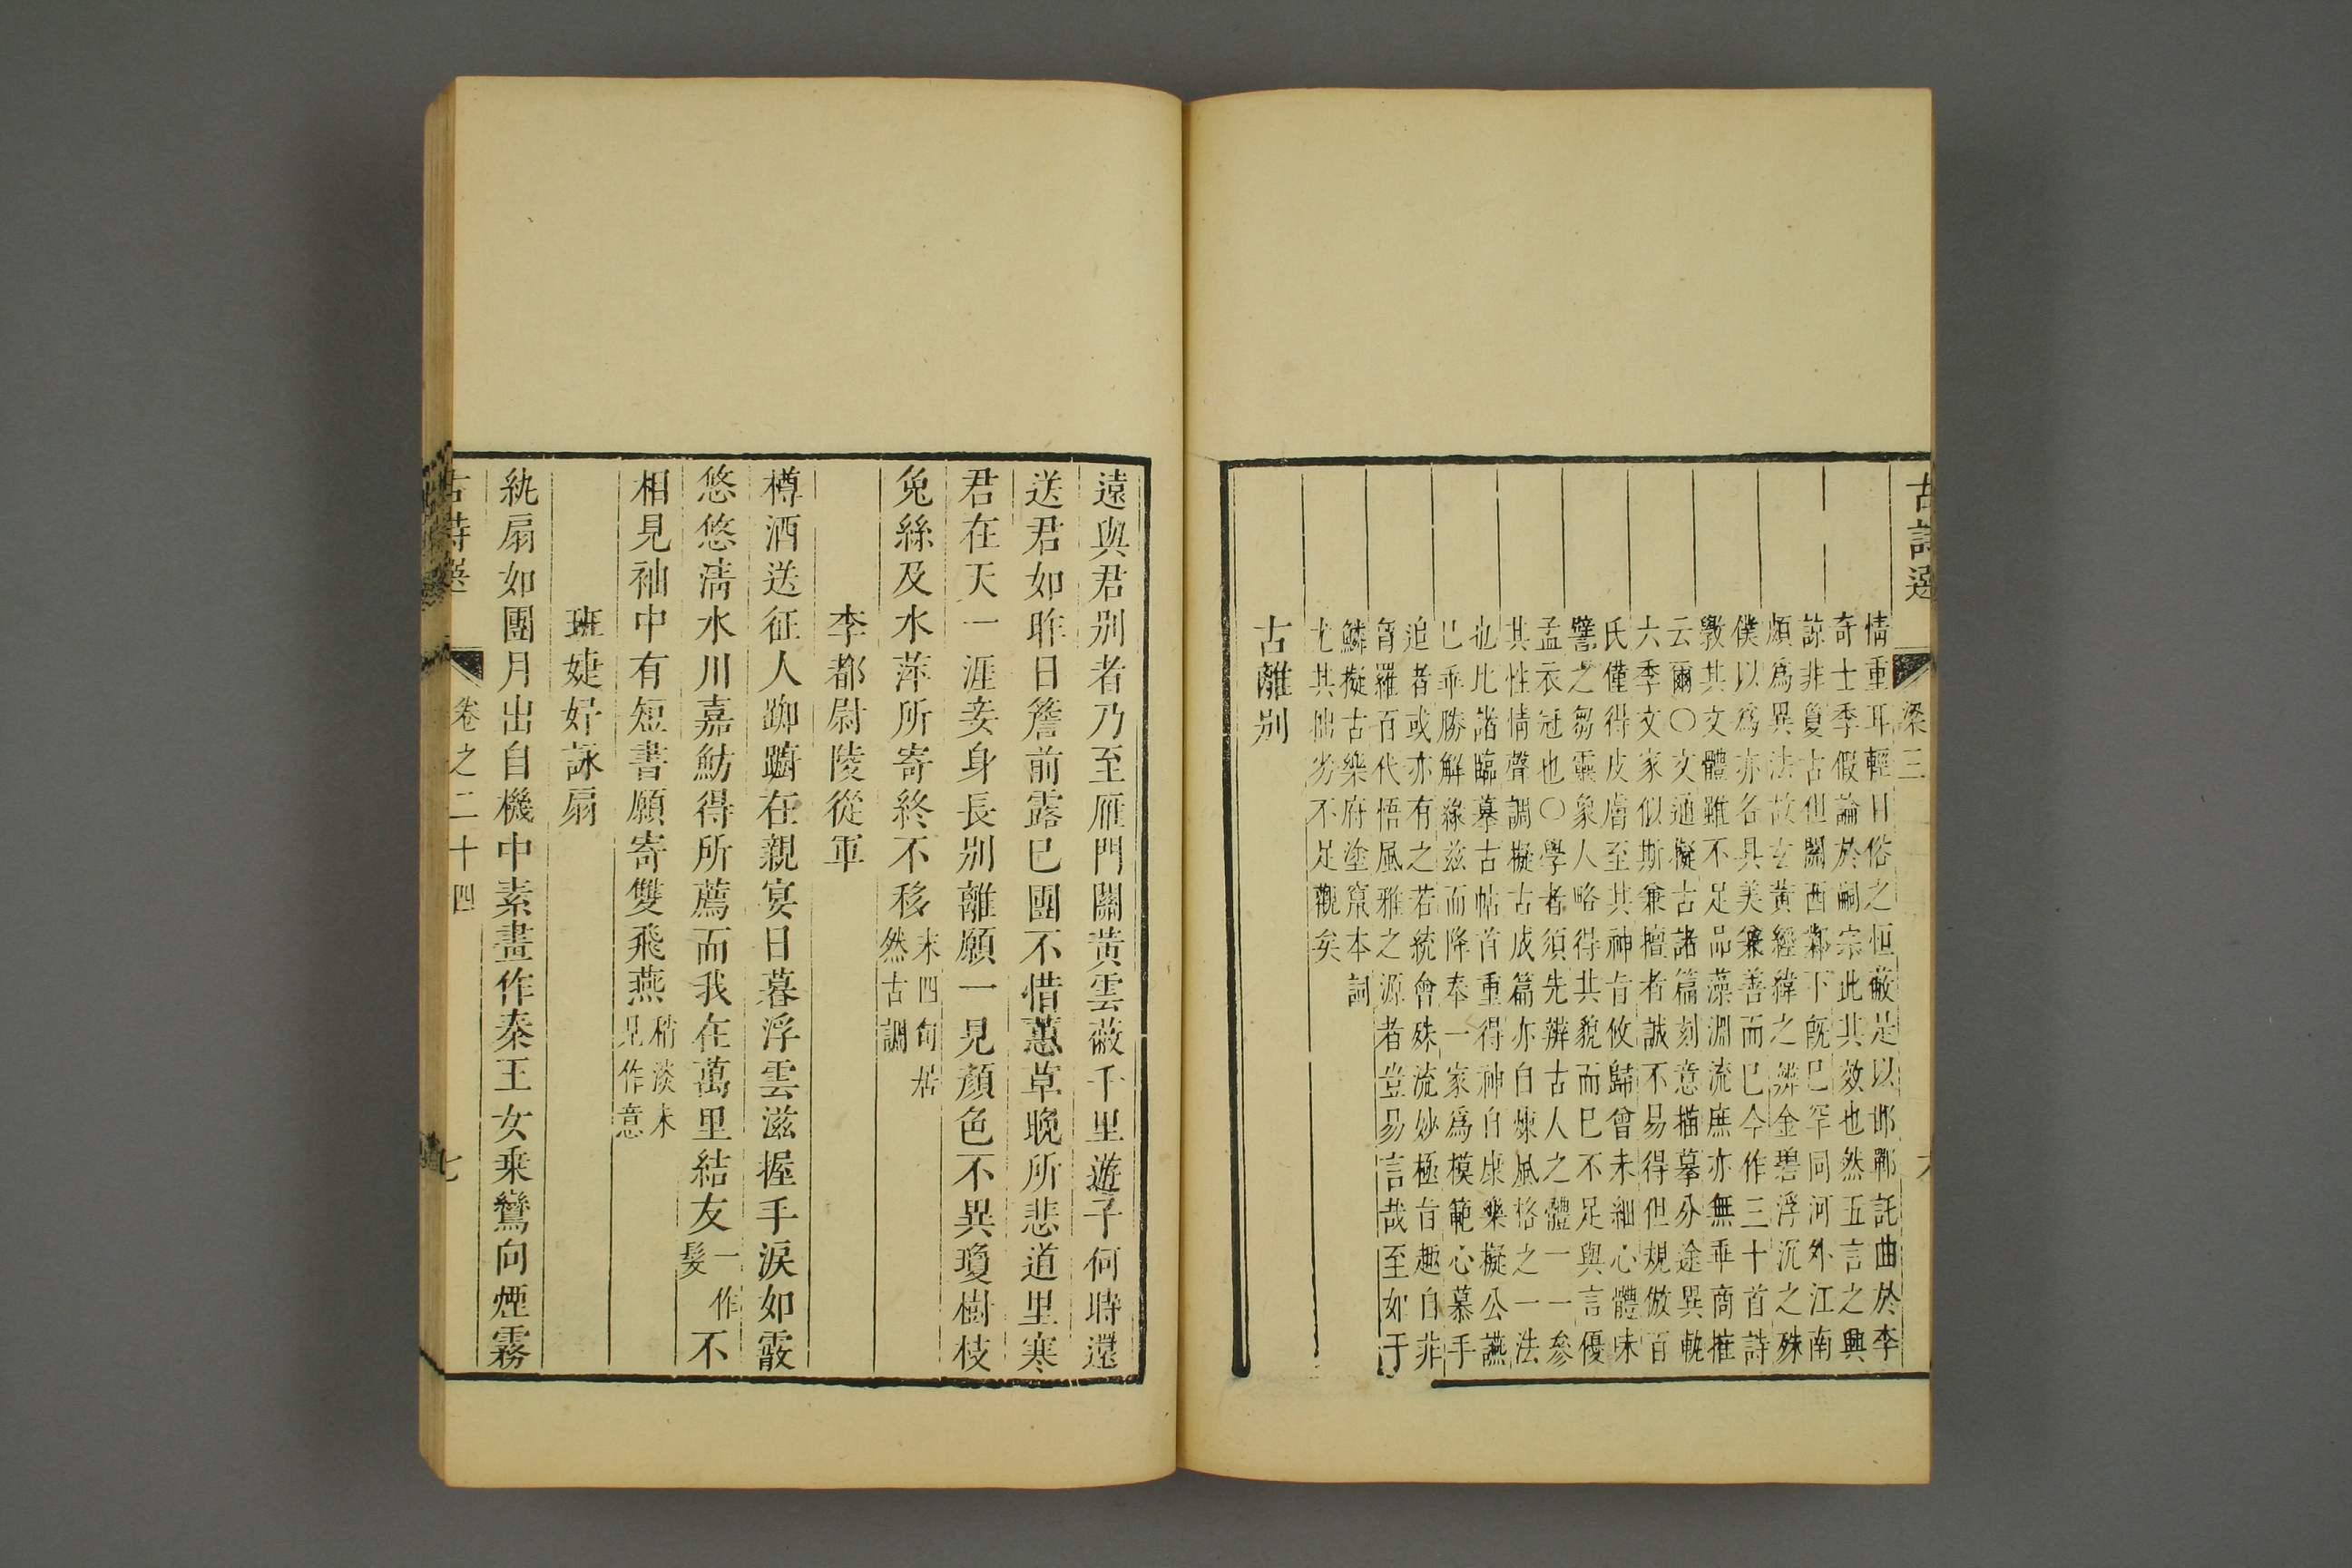 古詩選 梁三 六
情重耳輕目俗之恒蔽是以邯鄲託曲於李
奇士季假論於嗣宗此其效也然五言之興
諒非夐古但關西鄴下既已罕同河外江南
頗爲異法故玄黃經緯之辨金碧浮沉之殊
僕以爲亦各具美兼善而已今作三十首詩
斆其文體雖不足品藻淵流庶亦無乖商搉
云爾○文通擬古諸篇刻意描摹分途異軌
六季文家似斯兼擅者誠不易得但規倣百
氏僅得皮膚至其神旨攸歸曾未細心體味
譬之芻靈象人略得其貌而已不足與言優
孟衣冠也○學者須先辨古人之體一一參
其性情聲調擬古成篇亦自煉風格之一法
也比諸臨摹古帖首重得神自康樂擬公讌
已乖勝解緣兹而降奉一家爲模範心慕手
追者或亦有之若統會殊流妙極旨趣自非
胷羅百代悟風雅之源者豈易言哉至如于
鱗擬古樂府塗竄本詞
尤其拙劣不足觀矣
古離别
遠與君别者乃至雁門關黃雲蔽千里遊子何時還
送君如昨日簷前露已團不惜蕙草晚所悲道里寒
君在天一涯妾身長别離願一見顏色不異瓊樹枝
兔絲及水萍所寄終不移末四句居然古調
李都尉陵從軍
樽酒送征人踟躕在親宴日暮浮雲滋握手淚如霰
悠悠清水川嘉魴得所薦而我在萬里結友一作髮不
相見袖中有短書願寄雙飛燕稍淡末見作意
班婕妤詠扇
紈扇如團月出自機中素畫作秦王女乘鸞向煙霧
古詩選 卷之二十四 七